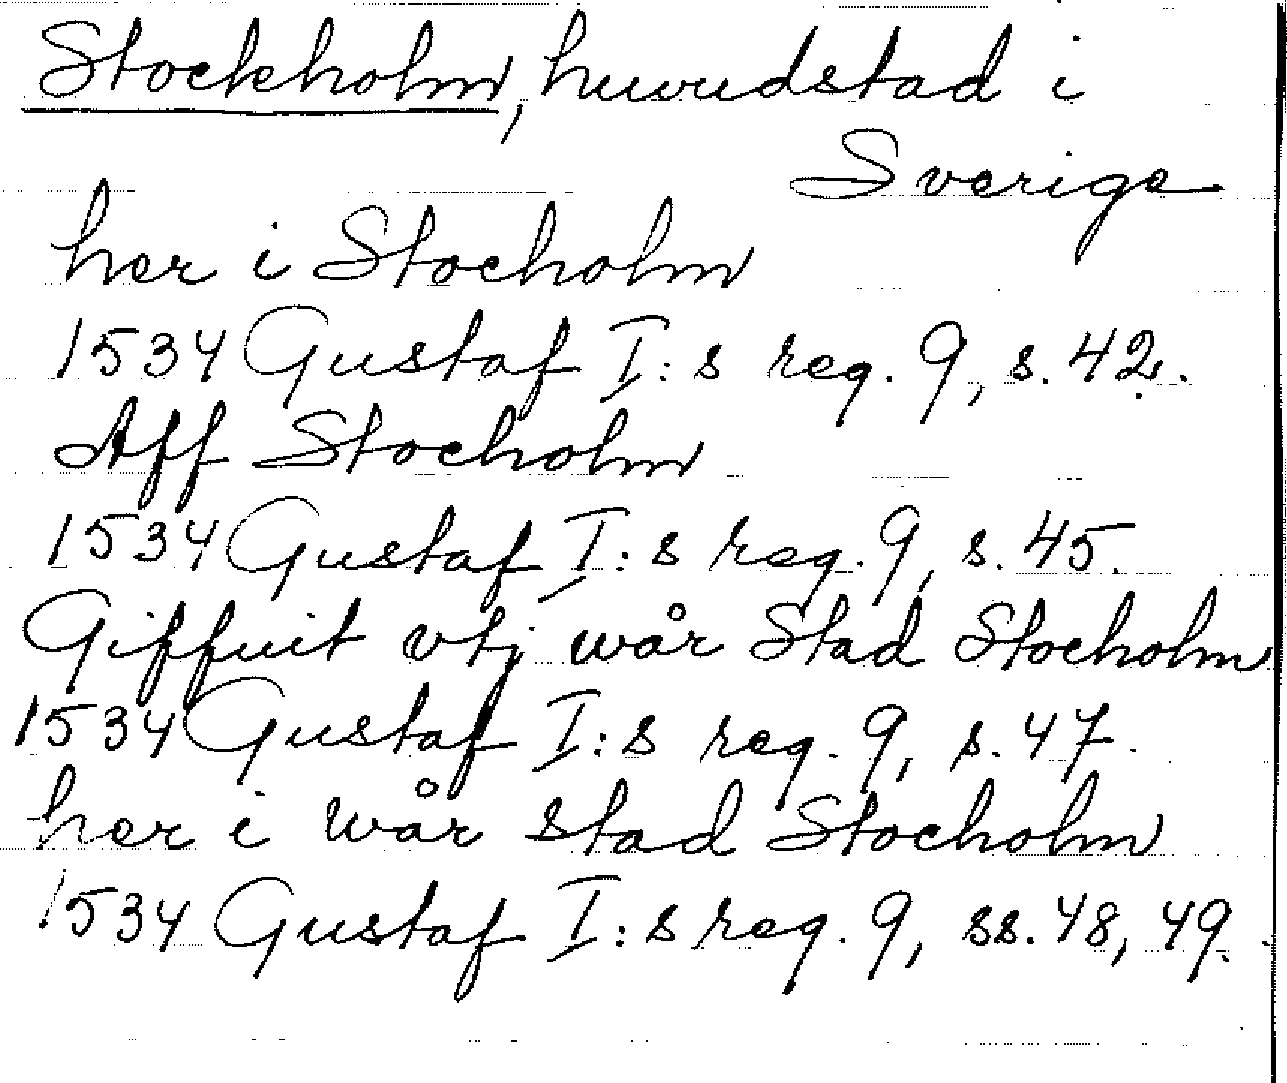 Stockholm, huvudstad i
Sverige
her i Stocholm
1534 Gustaf I:s reg. 9, s. 42.
Aff Stocholm
1534 Gustaf I:s reg. 9, s. 45.
Giffuit vtj wår Stad Stocholm
1534 Gustaf I:s reg. 9, s. 47.
her i wår stad Stocholm
1534 Gustaf I:s reg. 9, ss. 48, 49.